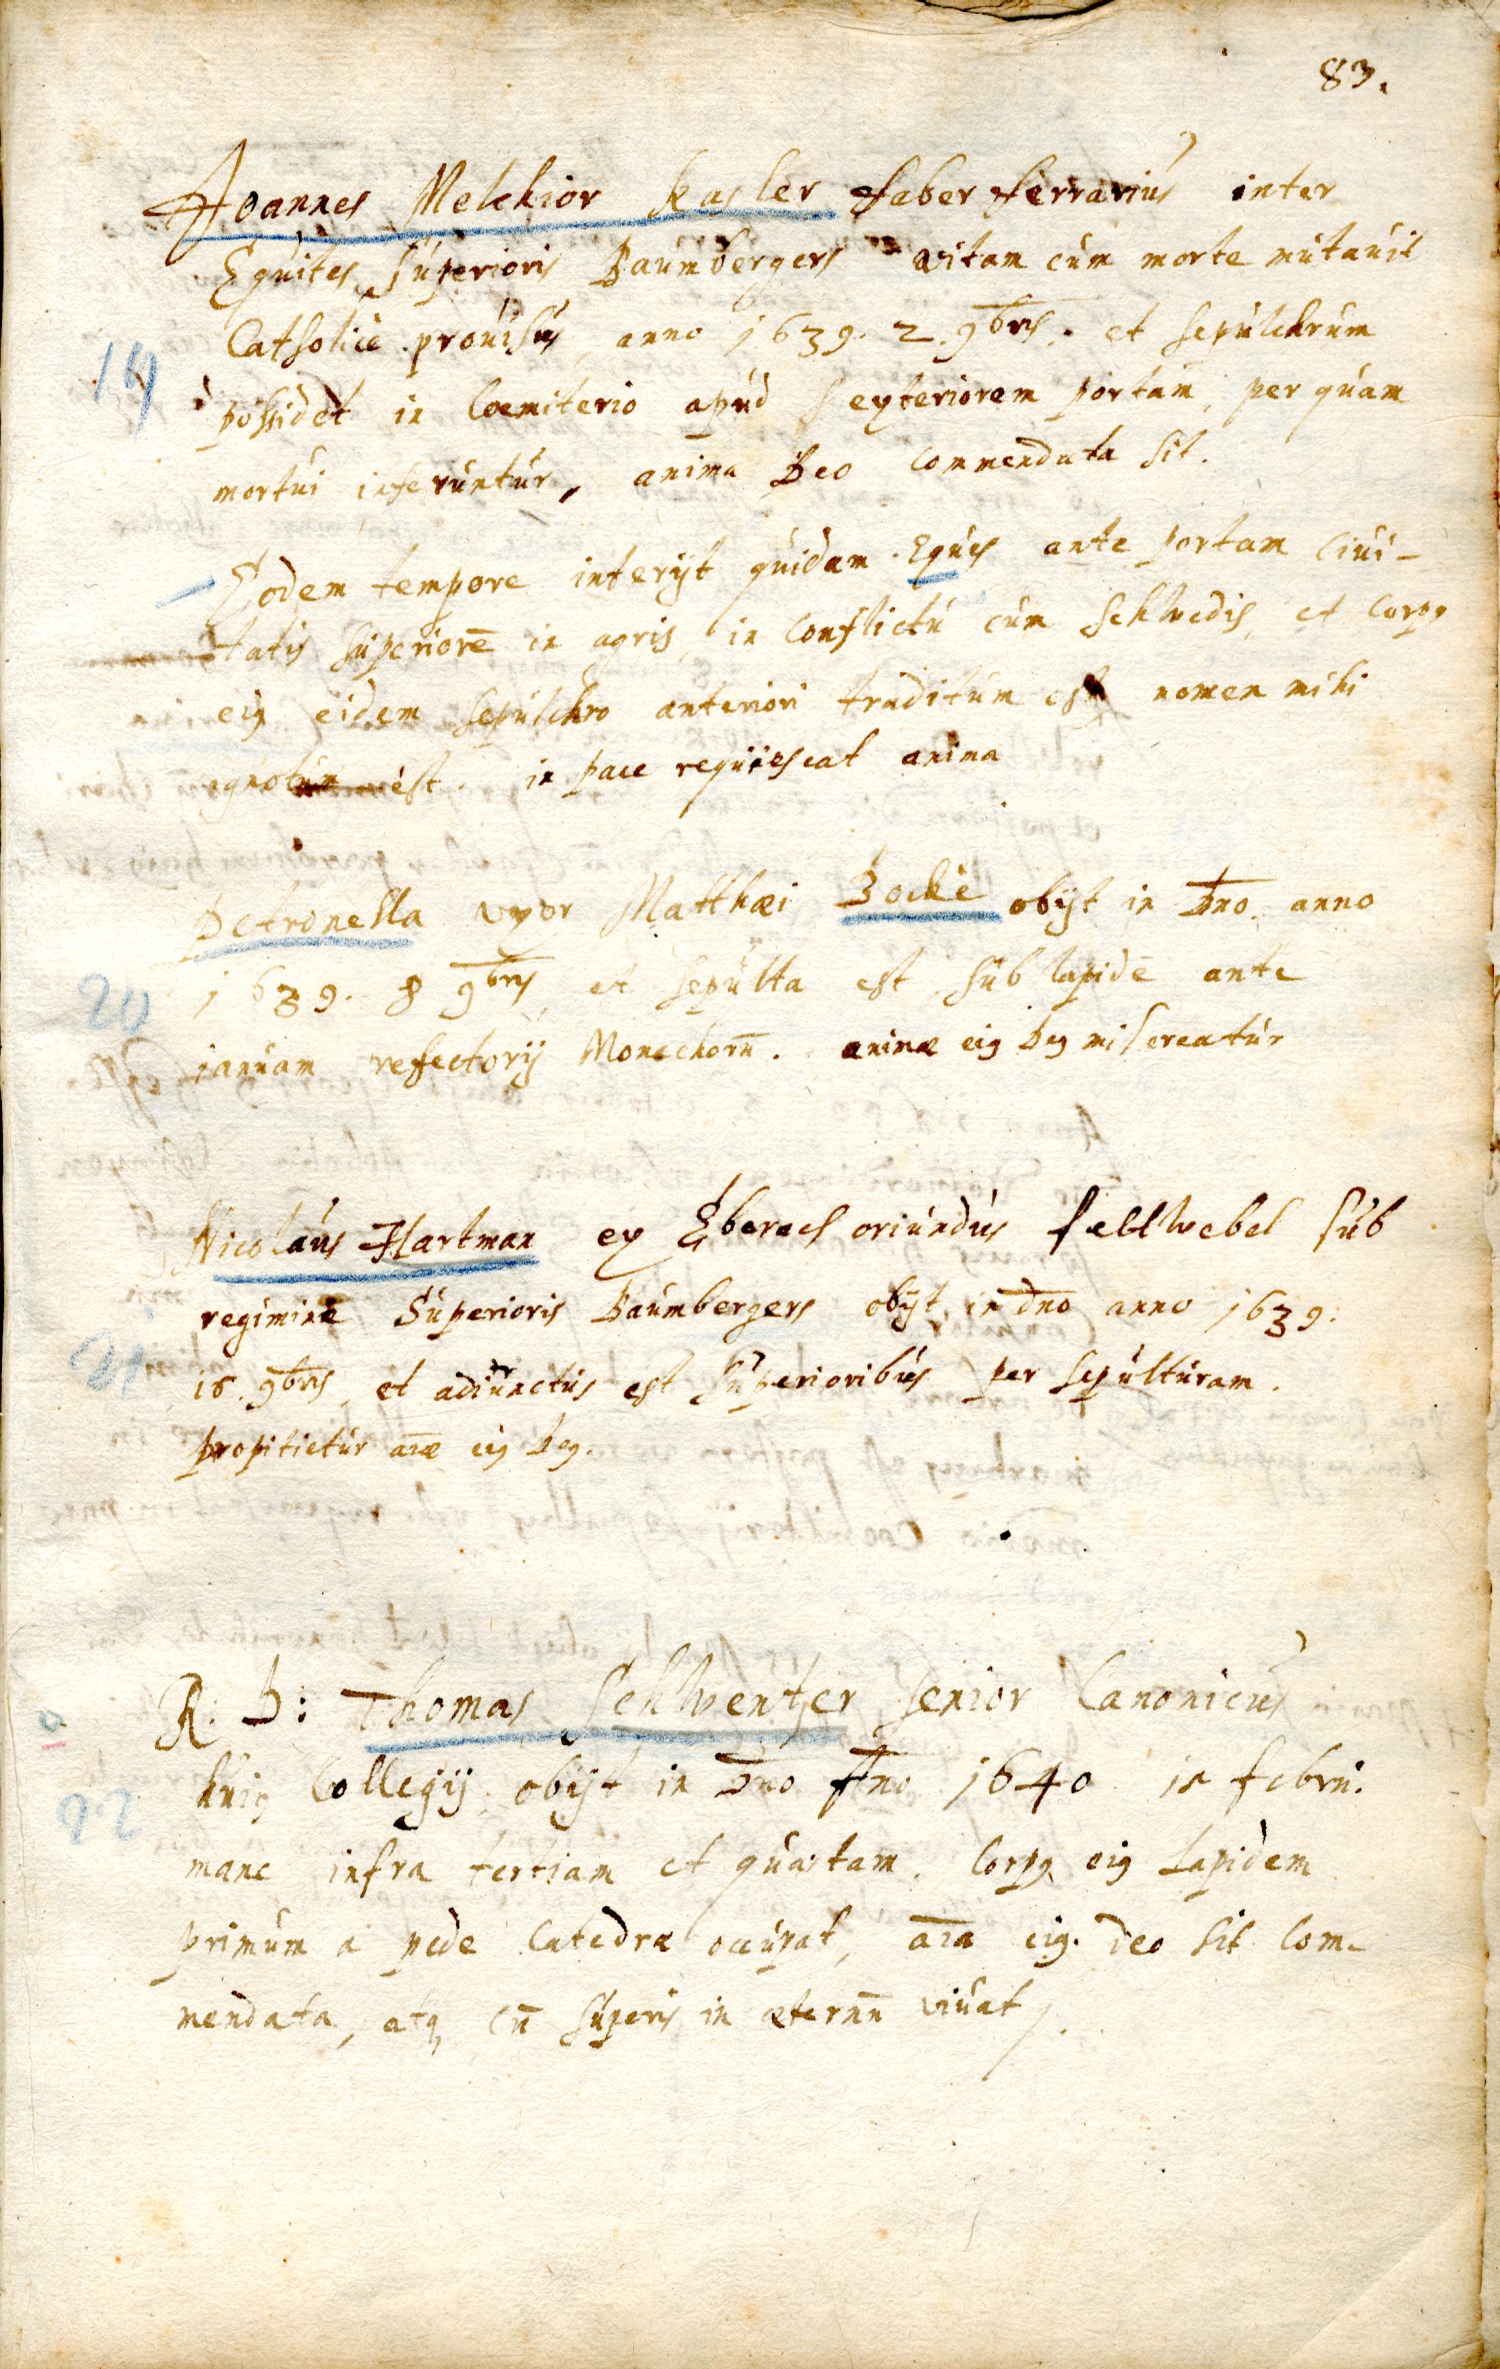 83.
Joannes Melchior Kasler faber ferrarius inter
Equites Superioris Baumbergers vitam cum morte mutauit
Catholicè prouisus, anno 1639. 2. 9bris. et sepulchrum
19
possidet in Coemiterio apud exteriorem portam, per quam
mortui inferuntur, anima Deo commendata sit.
Eodem tempore interijt quidam Eques ante portam Ciui-
tatis superiorē in agris, in conflictu cum Schwedis, et corpꝰ
eiꝰ eidem sepulchro anteriori traditum est, nomen mihi
ignotum est. in pace requiescat anima
Petronella vxor Matthæi Bockè obijt in Dn̄o. anno
20
1639. 8 9bris, et sepulta est sub lapide ante
ianuam refectorij Monachorū. animæ eiꝰ Deꝰ misereatur
Nicolaus Hartman ex Eberach oriundus feltwebel sub
regimine Superioris Baumbergers obijt in dn̄o anno 1639.
21
18. 9bris, et adiunctus est superioribus per sepulturam.
propitietur aīæ eiꝰ Deꝰ.
R: D: Thomas Schwentzer senior Canonicus
huiꝰ Collegij obijt in Dn̄o An̄o 1640 18 febru.
22
mane infra tertiam et quartam. Corpꝰ eiꝰ Lapidem
primum a pede Catedræ occupat, aīa eiꝰ. Deo sit Com-
mendata, atq, cū superis in æternū viuat.